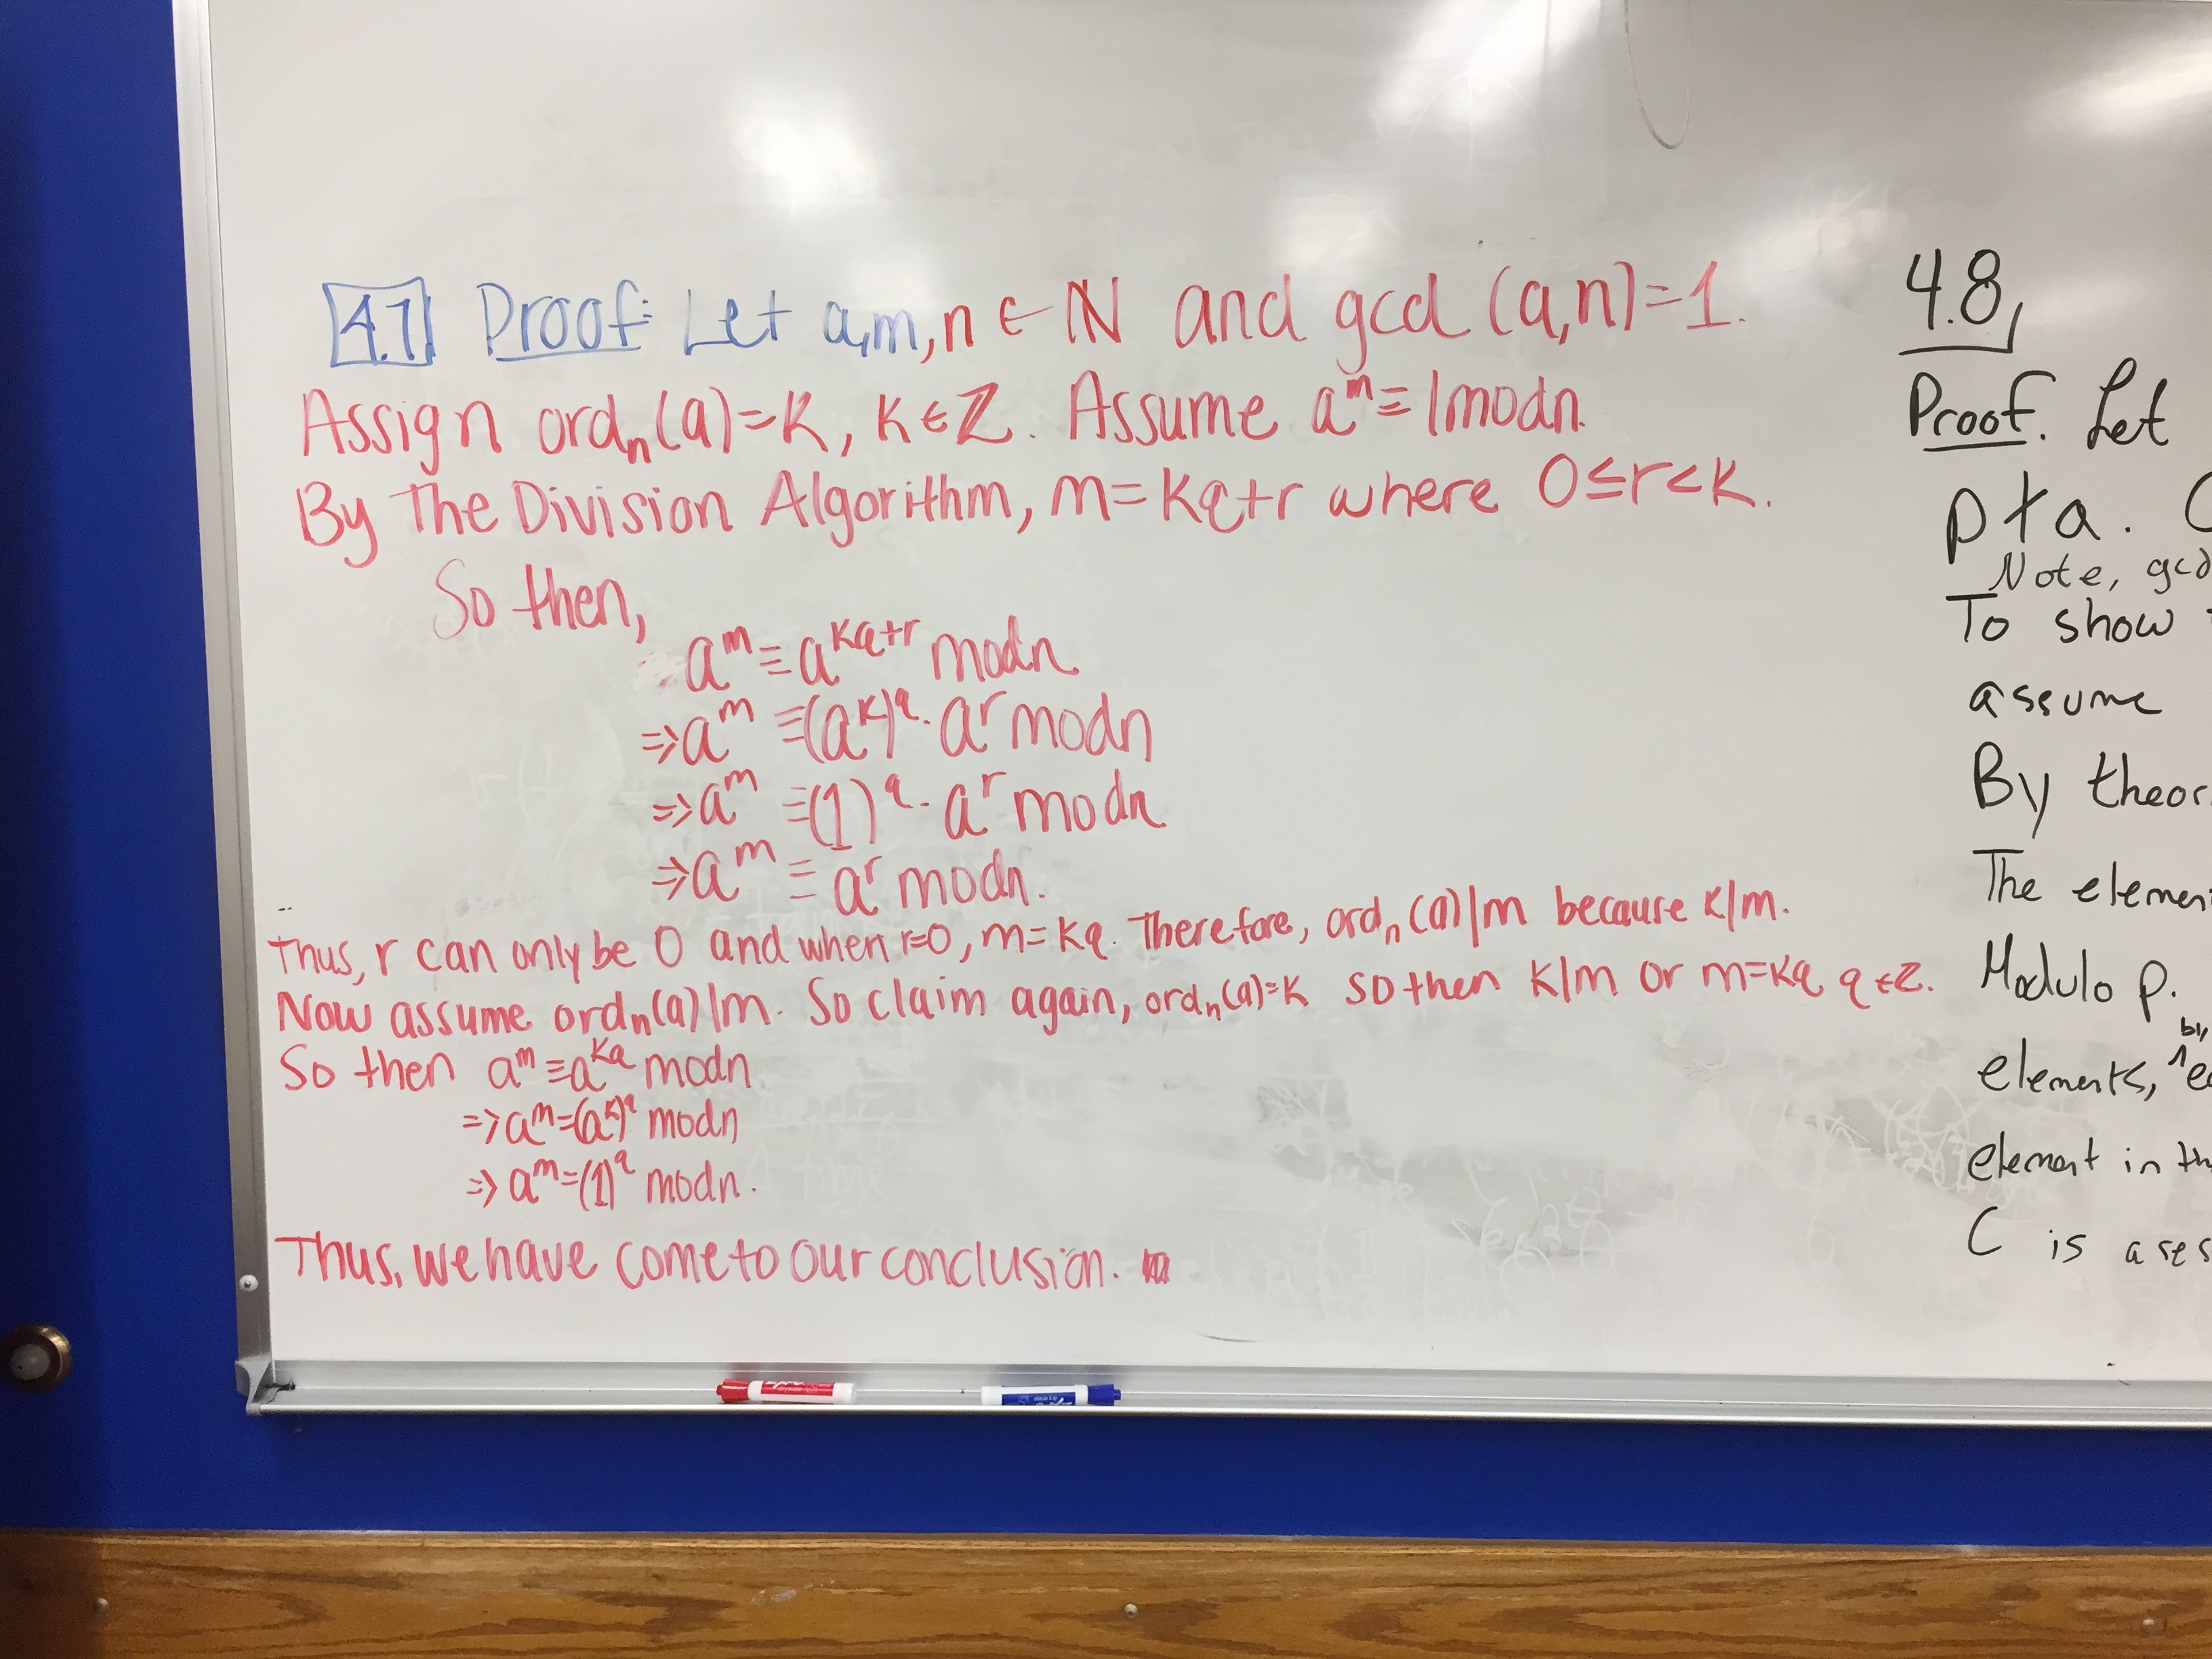 4.7 Proof: Let a,m,n ∈ ℕ and gcd (a,n)=1.
Assign ordₙ(a)=k, k∈ℤ. Assume aᵐ≡1modn.
By The Division Algorithm, m=kq+r where 0≤r<k.
So then,
a^m≡a^{kq+r} modn
⇒a^m≡(a^k)^q·a^r modn
⇒a^m≡(1)^q·a^r modn
⇒a^m≡a^r modn.
Thus, r can only be 0 and when r=0, m=kq. Therefore, ordₙ(a)|m because k|m.
Now assume ordₙ(a)|m. So claim again, ordₙ(a)=k so then k|m or m=kq q∈ℤ.
So then a^m≡a^{kq} modn
⇒a^m=(a^k)^q modn
⇒a^m=(1)^q modn.
Thus, we have come to our conclusion.
4.8
Proof. Let
p∤a.
Note, gcd
To show
assume
By
The
Modulo p.
by
elements,
element in
C is a